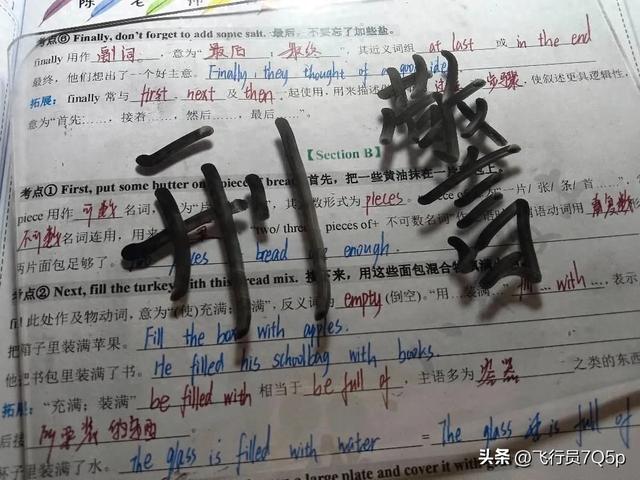 陈 老 师
考点⑥ Finally, don't forget to add some salt. 最后，不要忘了加些盐。
finally 用作 副词 ，意为“最后 ；最终 ”，其近义词组 at last 或 in the end
最终，他们想出了一个好主意。Finally they thought of good
拓展：finally 常与 first next 及 then 起使用，用来描述 步骤，使叙述更具逻辑性，
意为“首先……，接着……，然后……，最后……”。
刑 警
【Section B】
考点① First, put some butter on piece of bread. 首先，把一些黄油抹在一片 上。
piece 用作 可数 名词，意为“片 数形式为 pieces。 piece of 为“一片/ 张/ 条/ 首……”，
不可数名词连用，用来 “two/ three pieces of+ 不可数名词” 谓语动词用 复数形
两片面包足够了。 bread enough.
考点② Next, fill the turkey with this bread mix. 接下来，用这些面包混合物
fill 此处作及物动词，意为“(使)充满；装满”，反义词为 empty (倒空)。“用…装满…” fill … with …，表示
把箱子里装满苹果。Fill the box with apples.
他把书包里装满了书。He filled his schoolbag with books.
拓展：“充满；装满” be filled with 相当于 be full of ，主语多为 容器 之类的东西
后接 所要装的东西
杯子里装满了水。The glass is filled with water = The glass is full of
a large plate and cover it with
头条 @飞行员7Q5p